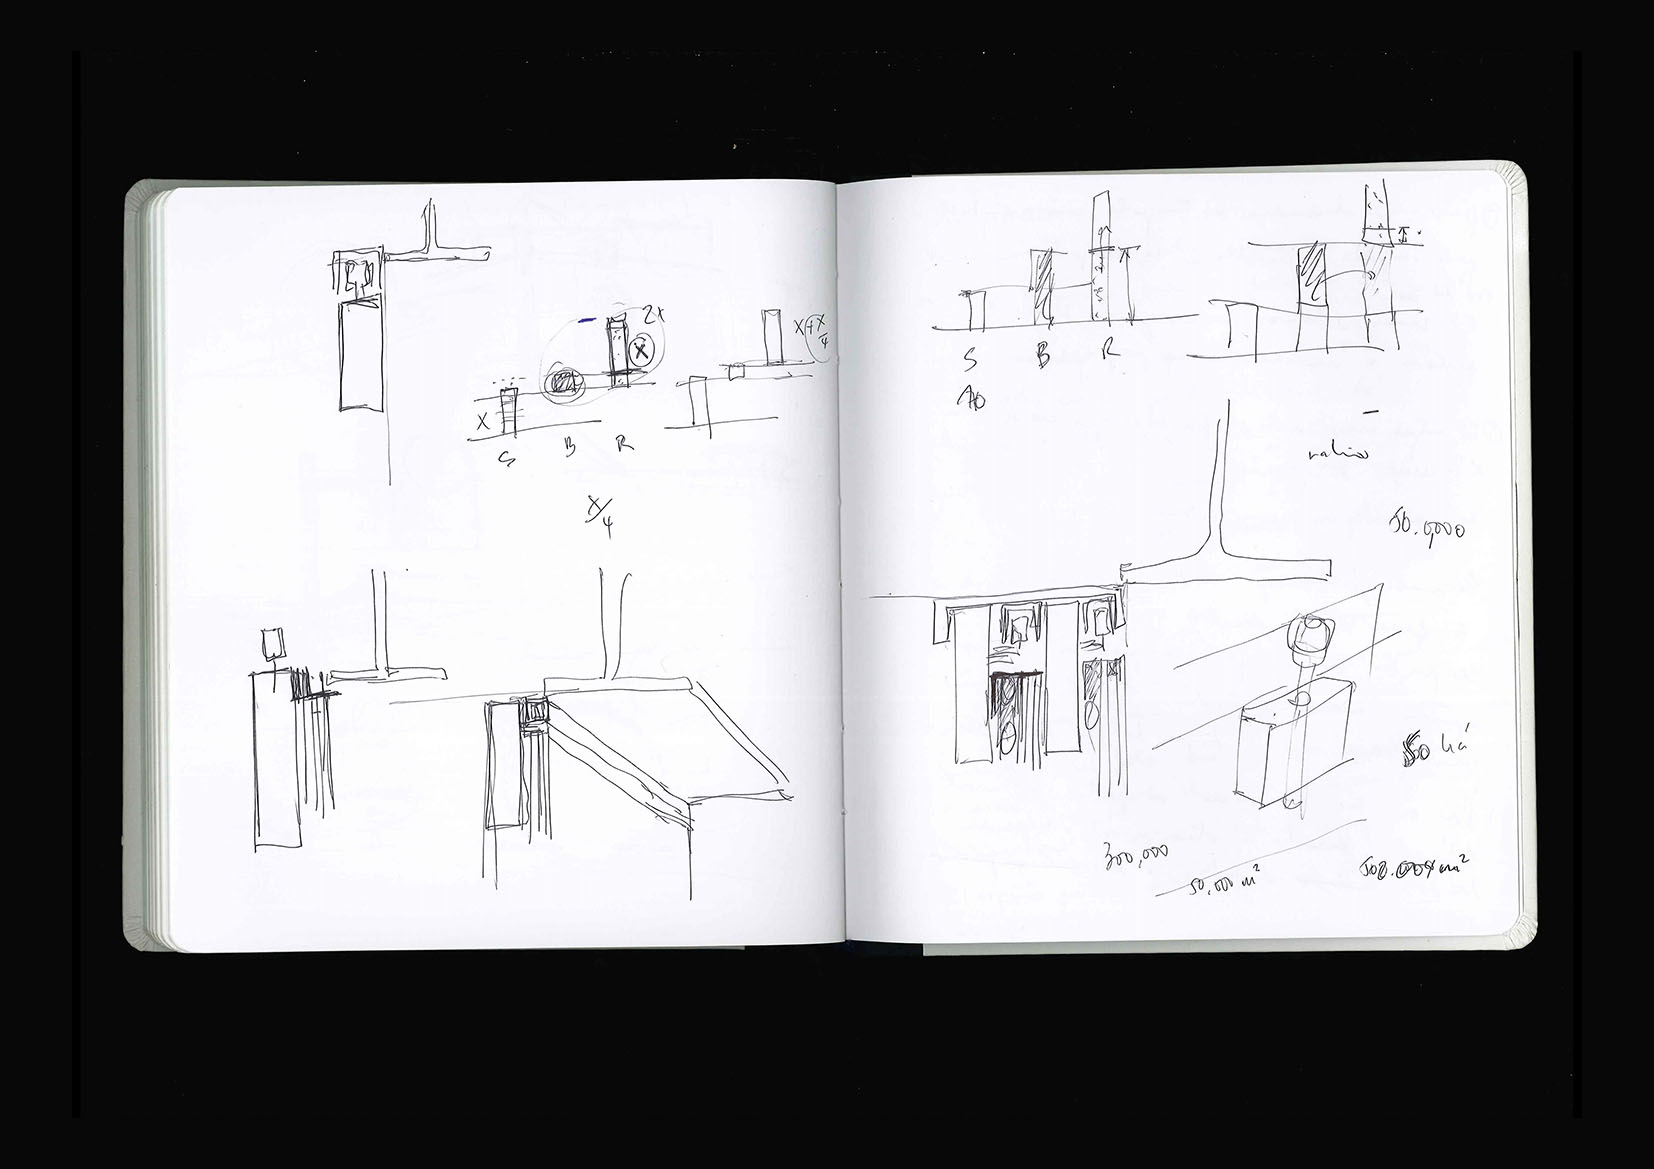 2x
X
X
S B R
X+X/4
X/4
S B R
ratio
50.000
50 ha
300,000
50,000 m²